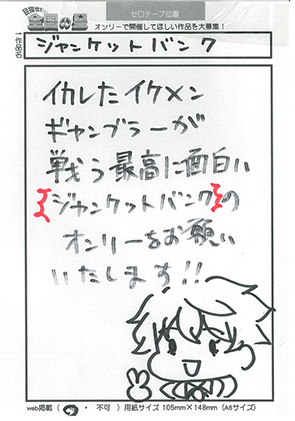 セロテープ位置
目指せ!
オンリーで開催してほしい作品を大募集!
↑作品名
ジャンケットバンク
イカレたイケメン
ギャンブラーが
戦う最高に面白い
ジャンケットバンクの
オンリーをお願い
いたします!!
web掲載( ・ 不可 )用紙サイズ 105mm×148mm (A6サイズ)